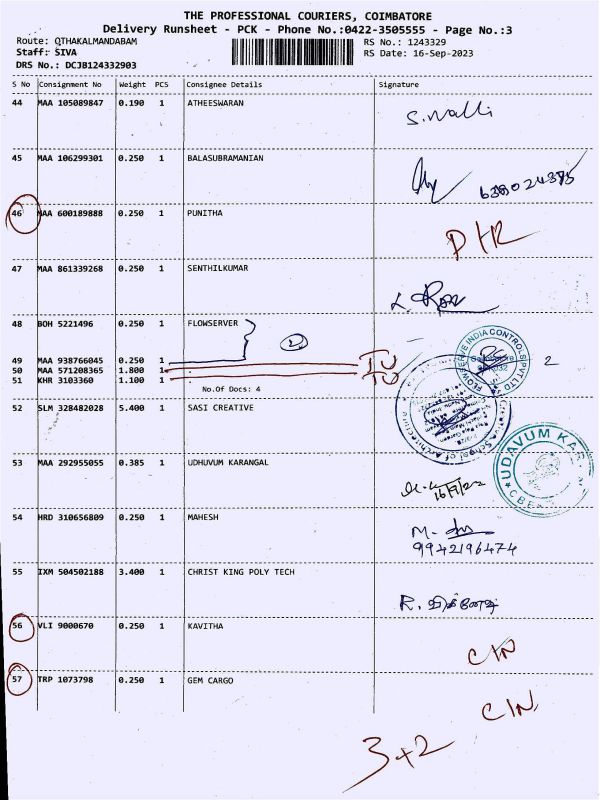 THE PROFESSIONAL COURIERS, COIMBATORE
Delivery Runsheet - PCK - Phone No.:0422-3505555 - Page No.:3
Route: QTHAKALMANDABAM RS No.: 1243329
Staff: SIVA RS Date: 16-Sep-2023
DRS No.: DCJB124332903
S No Consignment No Weight PCS Consignee Details Signature
44 MAA 105089847 0.190 1 ATHEESWARAN S. Nalli
45 MAA 106299301 0.250 1 BALASUBRAMANIAN
46 MAA 600189888 0.250 1 PUNITHA
47 MAA 861339268 0.250 1 SENTHILKUMAR
48 BOH 5221496 0.250 1 FLOWSERVER
2
49 MAA 938766045 0.250 1 2
50 MAA 571208365 1.800 1
51 KHR 3103360 1.100 1
No.Of Docs: 4
52 SLM 328482028 5.400 1 SASI CREATIVE
53 MAA 292955055 0.385 1 UDHUVUM KARANGAL
UDAVUM KA
CBE
54 HRD 310656809 0.250 1 MAHESH M.
9942196474
55 IXM 504502188 3.400 1 CHRIST KING POLY TECH R.
56 VLI 9000670 0.250 1 KAVITHA CIN
57 TRP 1073798 0.250 1 GEM CARGO CIN
3+2